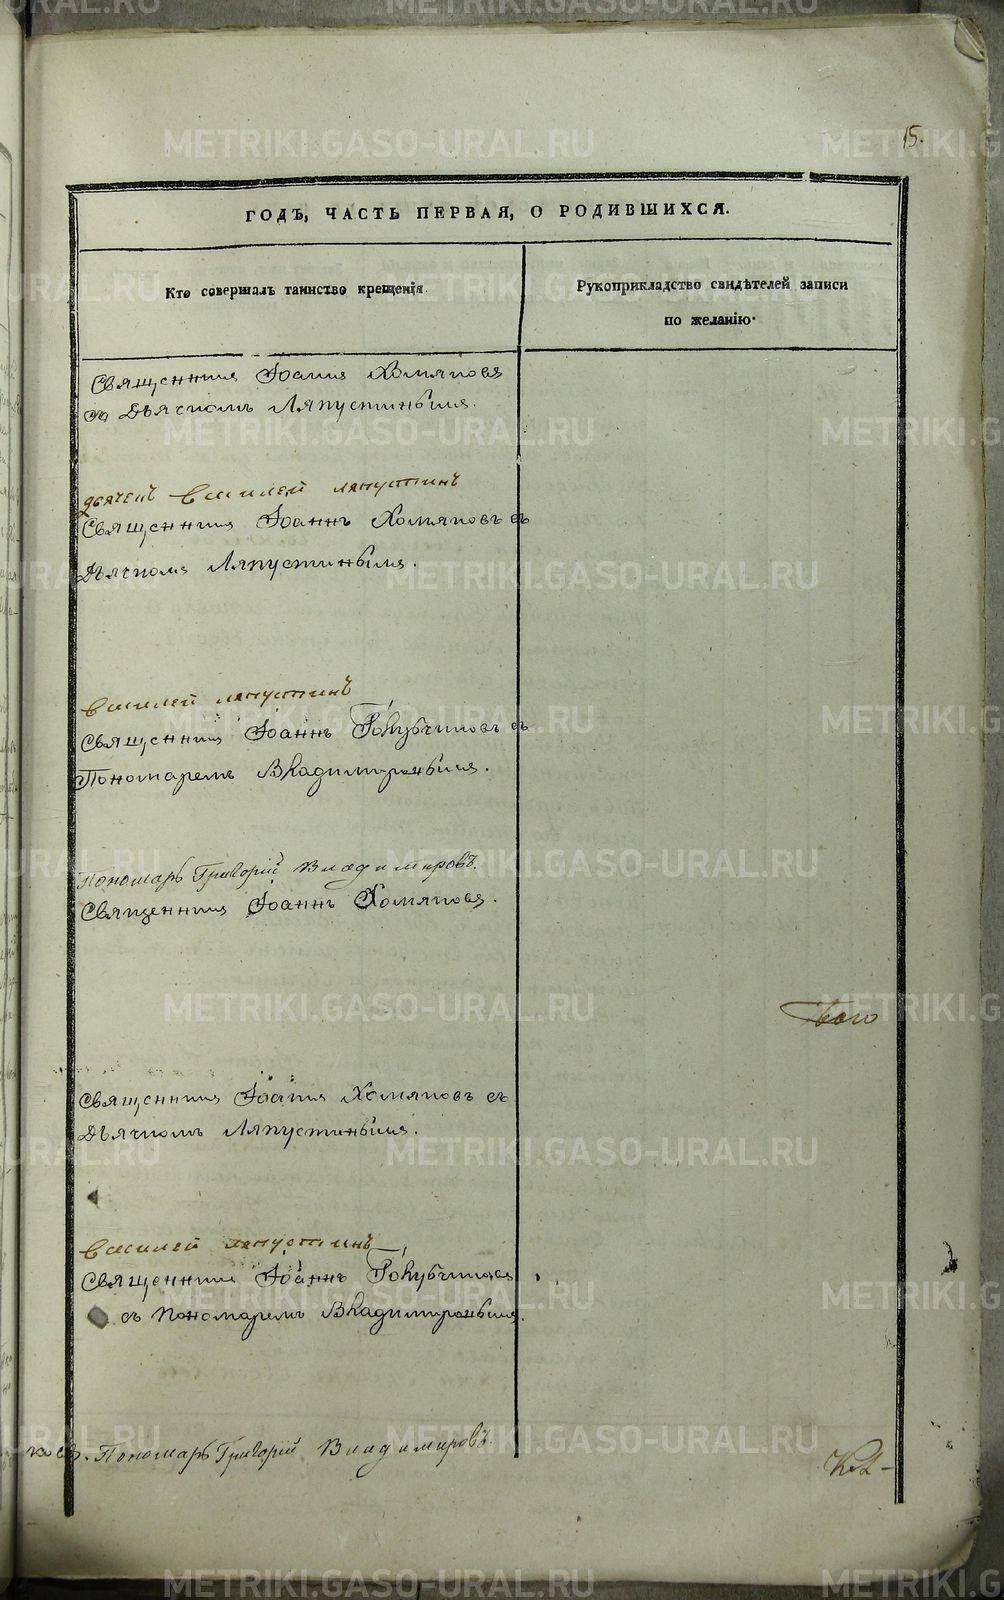 15.
ГОДЪ, ЧАСТЬ ПЕРВАЯ, О РОДИВШИХСЯ.
Кто совершалъ таинство крещенія
Рукоприкладство свидѣтелей записи
по желанію.
Священникъ Іоаннъ Хомяковъ
съ Дьячкомъ Ляпустинымъ.
дьячекъ Василей ляпустинъ
Священникъ Іоаннъ Хомяковъ съ
Дьячкомъ Ляпустинымъ.
Василей ляпустинъ
Священникъ Іоаннъ Голубчиковъ съ
Пономаремъ Владимировымъ.
Пономарь Григорій Владимировъ.
Священникъ Іоаннъ Хомяковъ.
Священникъ Іоаннъ Хомяковъ съ
Дьячкомъ Ляпустинымъ.
Василей ляпустинъ
Священникъ Іоаннъ Голубчиковъ
съ Пономаремъ Владимировымъ.
Пономарь Григорій Владимировъ.
METRIKI.GASO-URAL.RU